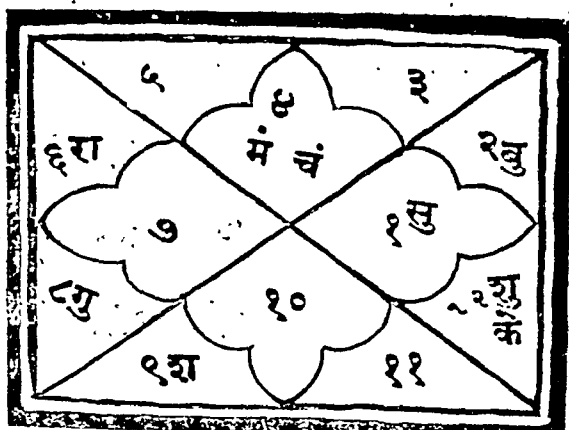 ५
४
३
मं चं
६ रा
२ बु
७
१ सु
८ गु
१०
१२ शु
के
९ श
११